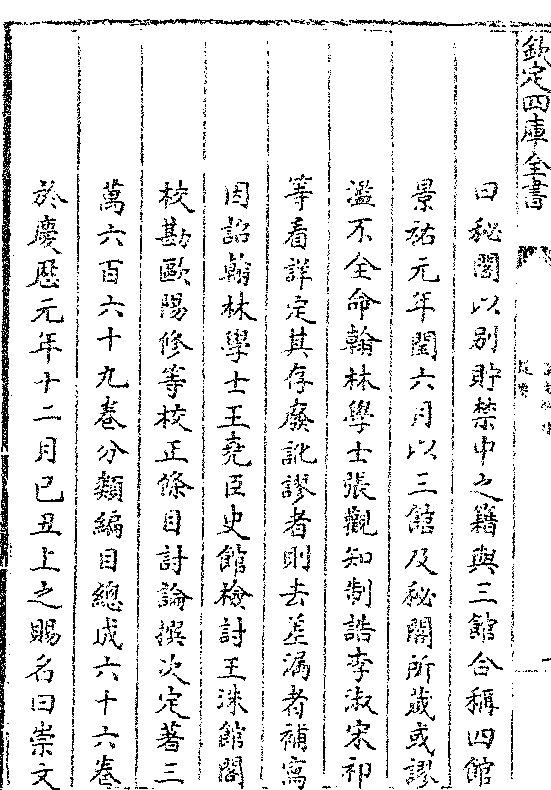 欽定四庫全書
曰秘閣以别貯禁中之籍與三館合稱四館
景祐元年閏六月以三館及秘閣所藏或謬
濫不全命翰林學士張觀知制誥李淑宋祁
等看詳定其存廢訛謬者則去差漏者補寫
因詔翰林學士王堯臣史館檢討王洙館閣
校勘歐陽修等校正條目討論撰次定著三
萬六百六十九卷分類編目總成六十六卷
於慶厯元年十二月已丑上之賜名曰崇文